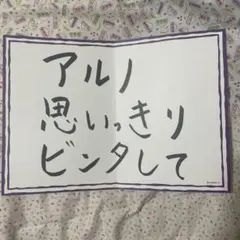 アルノ
思いっきり
ビンタして